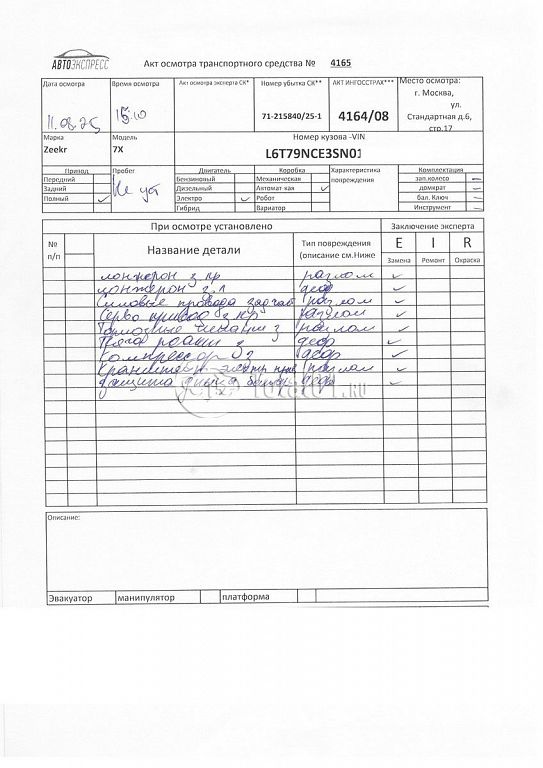 АВТОЭКСПРЕСС
Акт осмотра транспортного средства № 4165
Дата осмотра
11.08.25
Время осмотра
15:10
Акт осмотра эксперта СК*
Номер убытка СК**
71-215840/25-1
АКТ ИНГОССТРАХ***
4164/08
Место осмотра:
г. Москва,
ул.
Стандартная д.6,
стр.17
Марка
Zeekr
Модель
7X
Номер кузова -VIN
L6T79NCE3SN01
Привод
Передний
Задний
Полный ✓
Пробег
Не уст
Двигатель
Бензиновый
Дизельный
Электро ✓
Гибрид
Коробка
Механическая
Автомат-как ✓
Робот
Вариатор
Характеристика
повреждения
Комплектация
зап.колесо –
домкрат –
бал. Ключ –
Инструмент –
При осмотре установлено
Заключение эксперта
№
п/п
Название детали
Тип повреждения
(описание см.Ниже
E I R
Замена Ремонт Окраска
лонжерон з пр разлом ✓
лонжерон з л деф ✓
Силовые провода задние разлом ✓
Серво привод з пр разлом ✓
Тормозные з разлом ✓
з деф ✓
Компрессор з деф ✓
Кронштейн разлом ✓
Защита днища деф ✓
Описание:
Эвакуатор манипулятор платформа